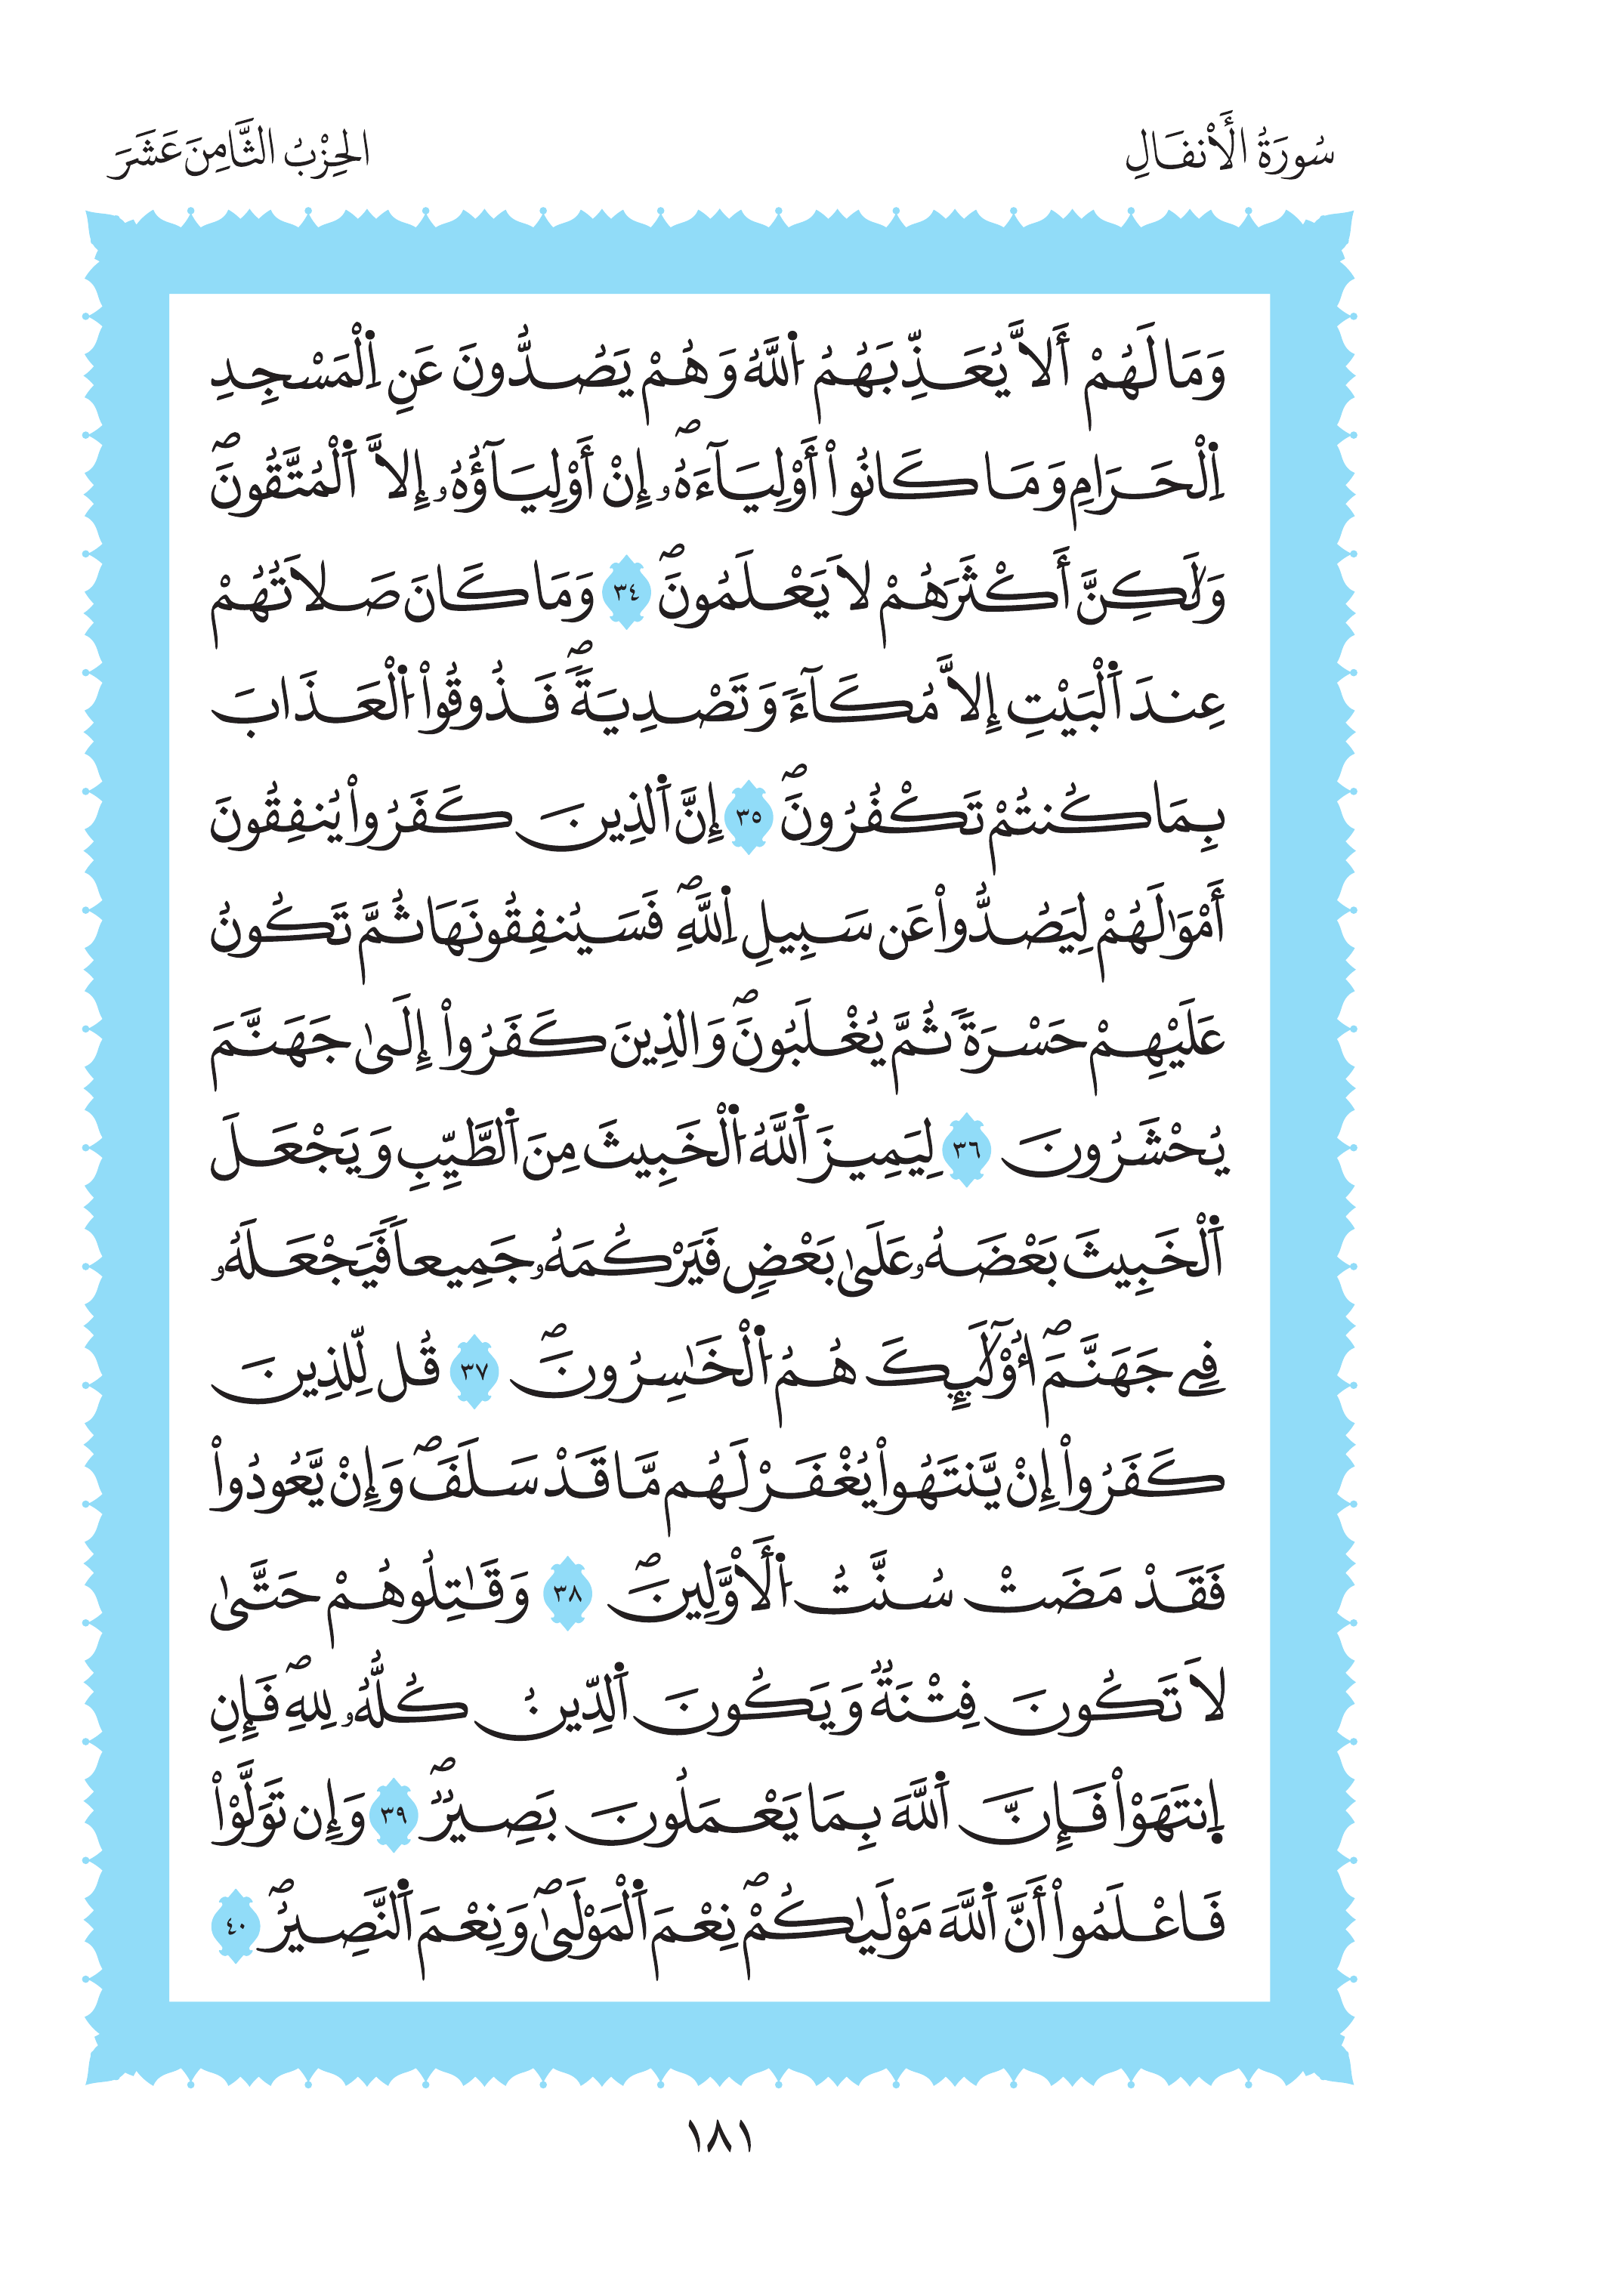 سُورَةُ الْأَنفَالِ
الحِزْبُ الثَّامِنَ عَشَرَ
وَمَا لَهُمْ أَلاَّ يُعَذِّبَهُمُ اُ۬للَّهُ وَهُمْ يَصُدُّونَ عَنِ اِ۬لْمَسْجِدِ
اِ۬لْحَرَامِ وَمَا كَانُواْ أَوْلِيَآءَهُۥۖ إِنْ أَوْلِيَآؤُهُۥ إِلاَّ اَ۬لْمُتَّقُونَۖ
وَلَٰكِنَّ أَكْثَرَهُمْ لَا يَعْلَمُونَۖ ٣٤ وَمَا كَانَ صَلَاتُهُمْ
عِندَ اَ۬لْبَيْتِ إِلاَّ مُكَآءٗ وَتَصْدِيَةٗۖ فَذُوقُواْ اُ۬لْعَذَابَ
بِمَا كُنتُمْ تَكْفُرُونَۖ ٣٥ إِنَّ اَ۬لذِينَ كَفَرُواْ يُنفِقُونَ
أَمْوَٰلَهُمْ لِيَصُدُّواْ عَن سَبِيلِ اِ۬للَّهِۖ فَسَيُنفِقُونَهَا ثُمَّ تَكُونُ
عَلَيْهِمْ حَسْرَةٗ ثُمَّ يُغْلَبُونَۖ وَالذِينَ كَفَرُواْ إِلَىٰ جَهَنَّمَ
يُحْشَرُونَ ٣٦ لِيَمِيزَ اَ۬للَّهُ اُ۬لْخَبِيثَ مِنَ اَ۬لطَّيِّبِ وَيَجْعَلَ
اَ۬لْخَبِيثَ بَعْضَهُۥ عَلَىٰ بَعْضٖ فَيَرْكُمَهُۥ جَمِيعاٗ فَيَجْعَلَهُۥ
فِے جَهَنَّمَۖ أُوْلَٰٓئِكَ هُمُ اُ۬لْخَٰسِرُونَۖ ٣٧ قُل لِّلذِينَ
كَفَرُواْ إِنْ يَّنتَهُواْ يُغْفَرْ لَهُم مَّا قَدْ سَلَفَۖ وَإِنْ يَّعُودُواْ
فَقَدْ مَضَتْ سُنَّتُ اُ۬لَأَوَّلِينَۖ ٣٨ وَقَٰتِلُوهُمْ حَتَّىٰ
لَا تَكُونَ فِتْنَةٞ وَيَكُونَ اَ۬لدِّينُ كُلُّهُۥ لِلهِۖ فَإِنِ
اِ۪نتَهَوْاْ فَإِنَّ اَ۬للَّهَ بِمَا يَعْمَلُونَ بَصِيرٞۖ ٣٩ وَإِن تَوَلَّوْاْ
فَاعْلَمُواْ أَنَّ اَ۬للَّهَ مَوْلَيٰكُمْۖ نِعْمَ اَ۬لْمَوْلَىٰۖ وَنِعْمَ اَ۬لنَّصِيرُۖ ٤٠
١٨١